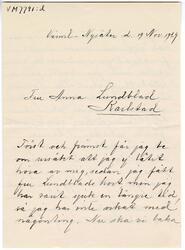 VM7791:d
Värml. Nysäter d. 19 Nov. 1929
Fru Anna Lundblad
Karlstad
Först och främst får jag be
om ursäkt att jag ej låtit
höra av mig, sedan jag fått
fru Lundblads kort men jag
har varit sjuk en längre tid
så jag har inte orkat med
någonting. Nu ska vi baka